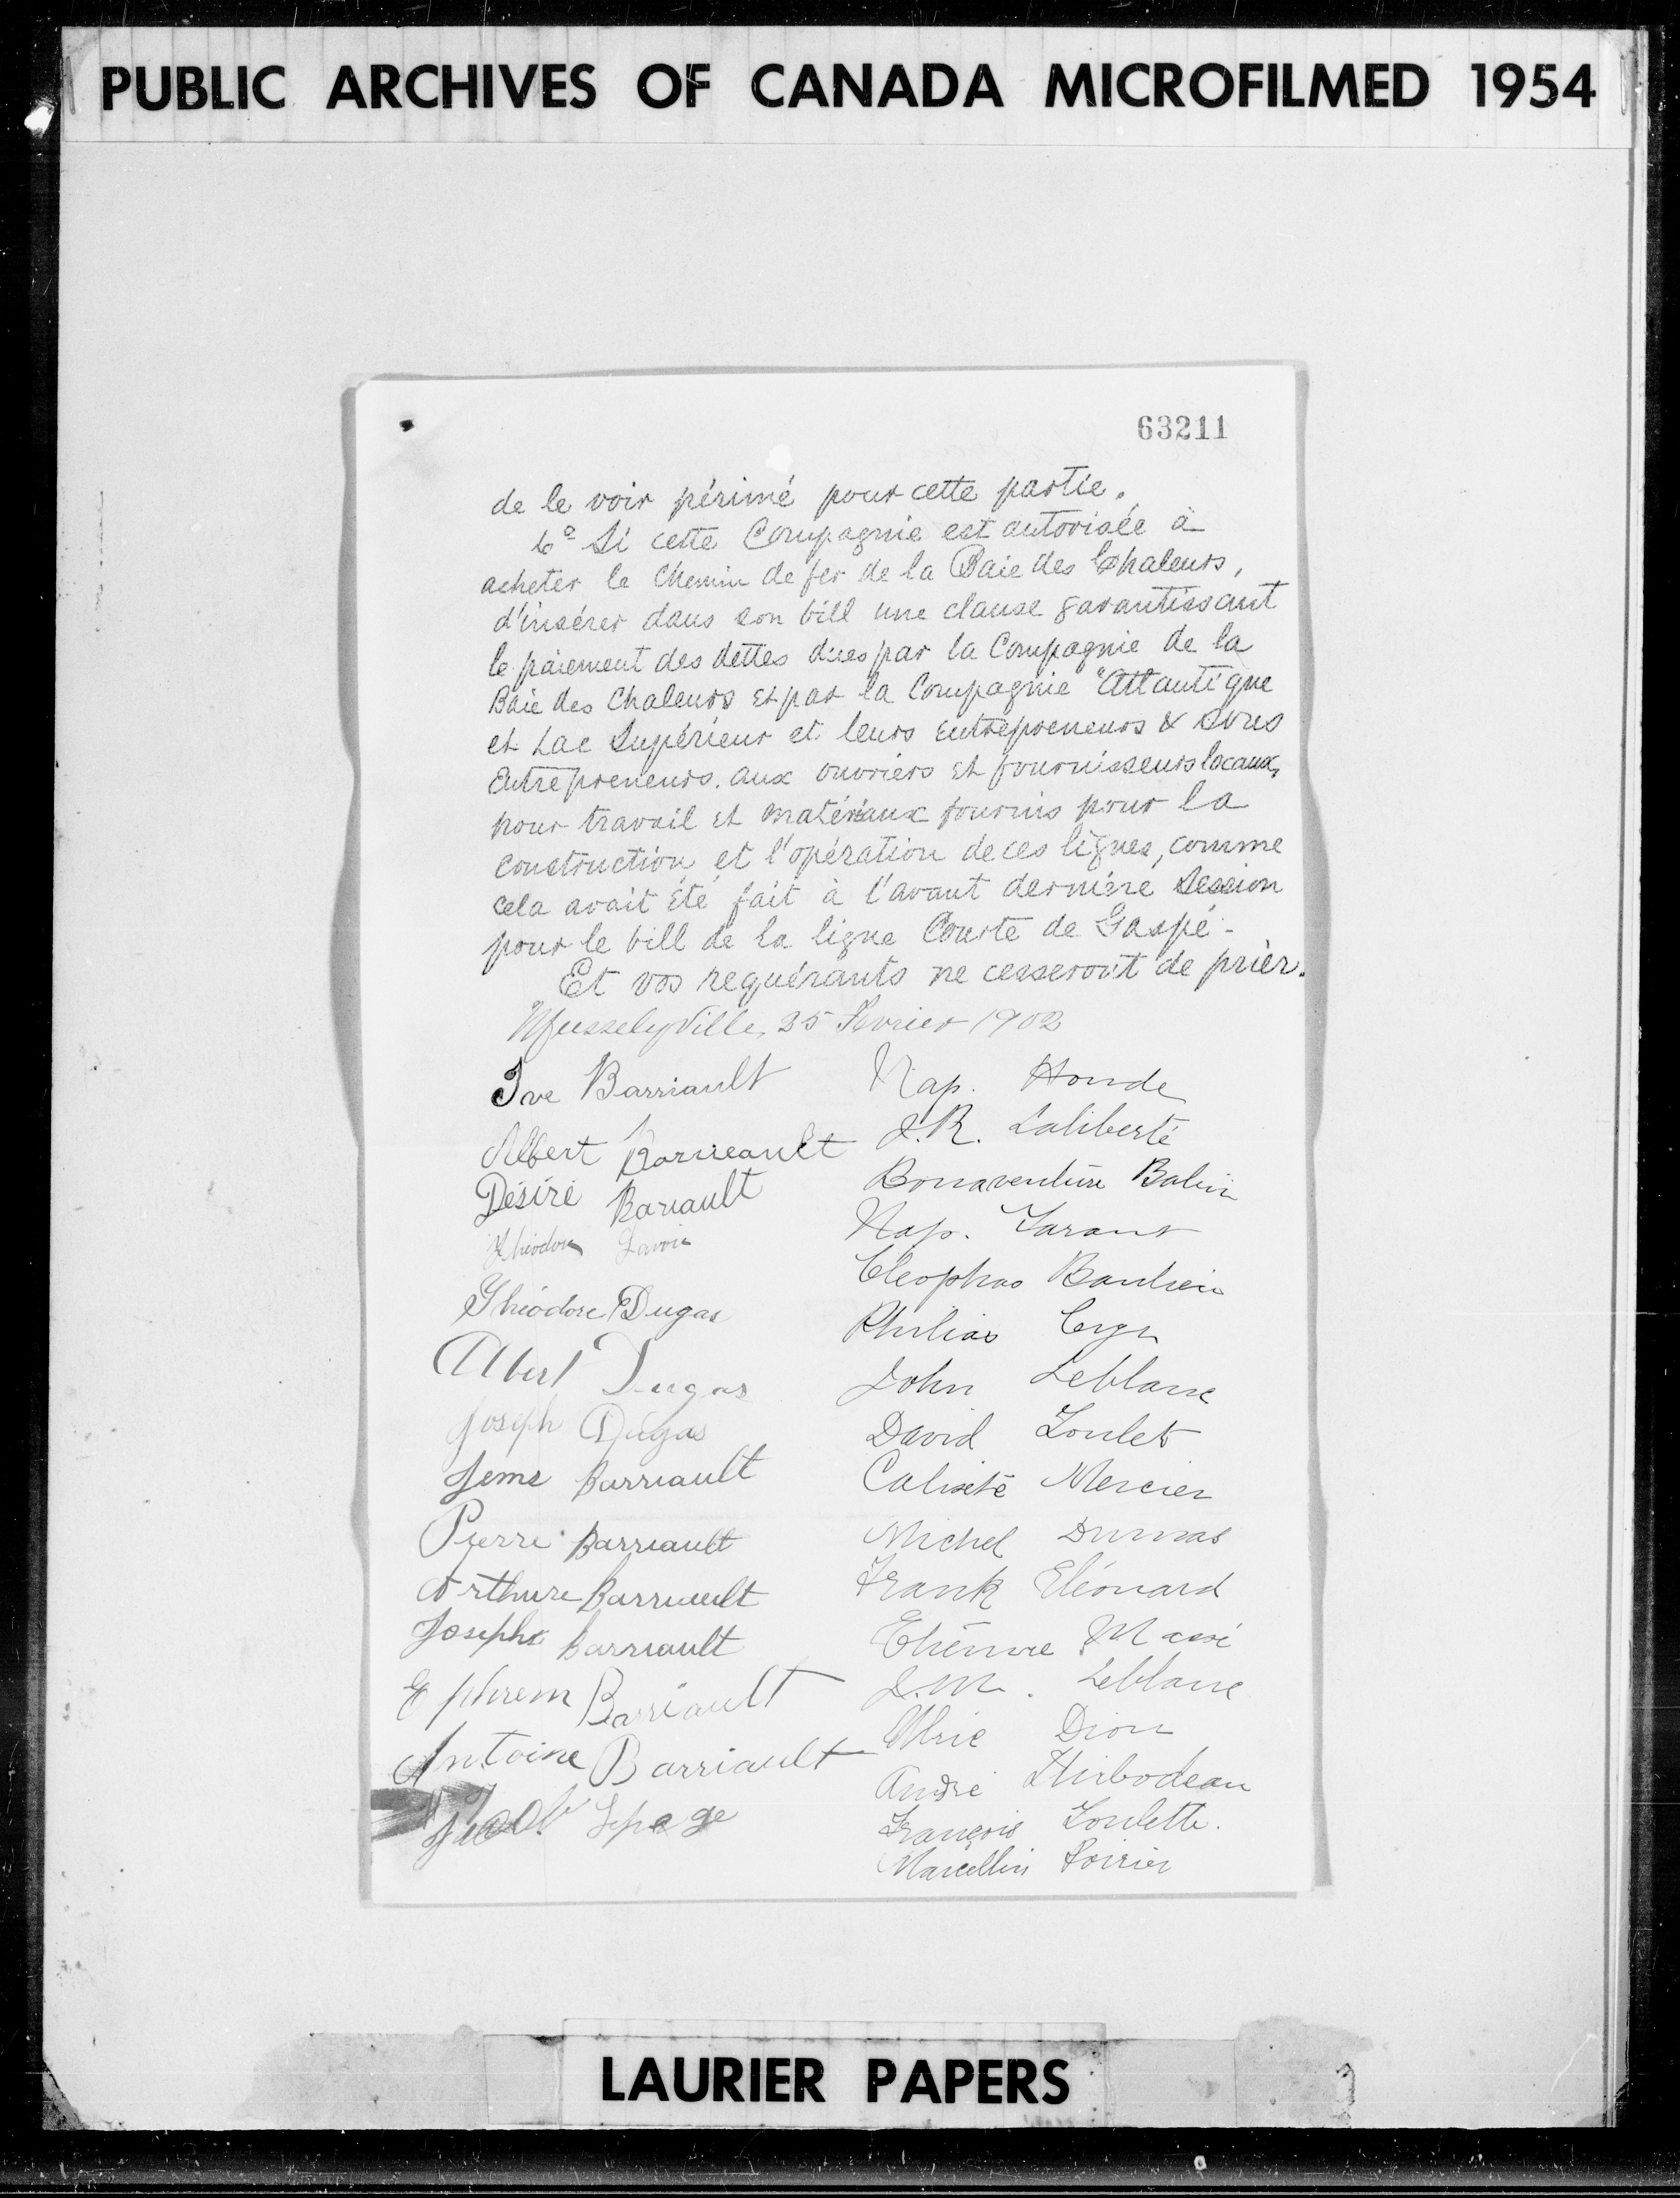 PUBLIC ARCHIVES OF CANADA MICROFILMED 1954
63211
de le voir périmé pour cette partie.
6º Si cette Compagnie est autorisée à
acheter le Chemin de fer de la Baie des Chaleurs,
d'insérer dans son bill une clause garantissant
le paiement des dettes dues par la Compagnie de la
Baie des Chaleurs et par la Compagnie "Atlantique
et Lac Supérieur et leurs entrepreneurs & sous
Entrepreneurs. aux ouvriers et fournisseurs locaux,
pour travail et matériaux fournis pour la
construction et l'opération de ces lignes, comme
cela avait été fait à l'avant dernière Session
pour le bill de la ligne Courte de Gaspé -
Et vos requérants ne cesseront de prier.
Musselyville, 25 Février 1902
Barriault
Albert Barrieault
Désiré Bariault
Théodore Savoie
Théodore Dugas
Albert Dugas
Joseph Dugas
Jeme Barriault
Pierre Barriault
Arthure Barriault
Joseph Barriault
Ephrem Barriault
Antoine Barriault
Jacob Lepage
Nap. Houde
J.R. Laliberté
Bonaventure Babin
Nap.
Cleophas Baudrie
Philias Cyr
John Leblanc
David Loulet
Calixte Mercier
Michel Dumas
Frank Eléonard
Etienne Massé
J.M. Leblanc
Ulric Dion
André Thibodeau
François Loulette.
Marcellin Poirier
LAURIER PAPERS